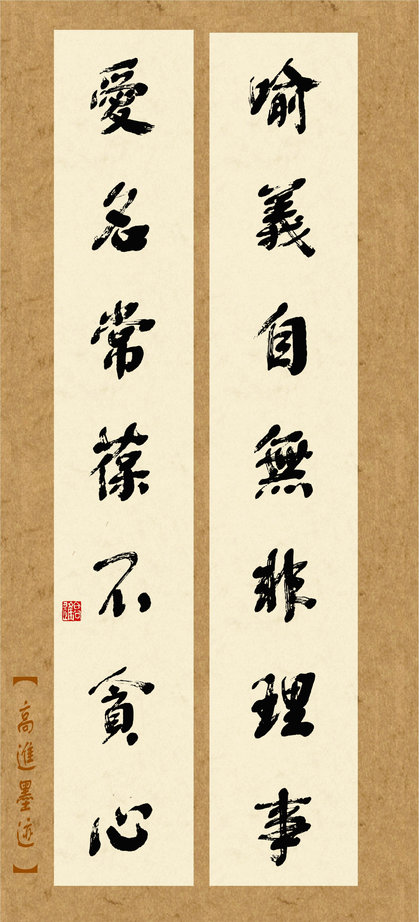 喻義自無非理事
愛名常葆不貪心
高進
【高進墨迹】